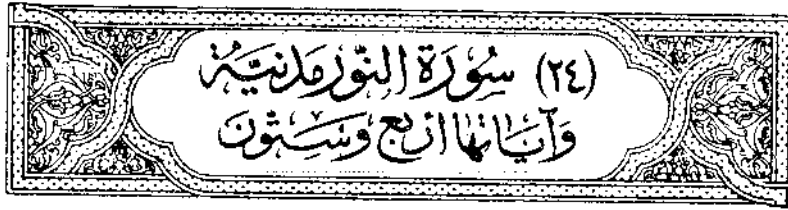 (٢٤) سُورَة النّور مَدنيَّة
وَآيَاتها أربَع وَسِتّونَ